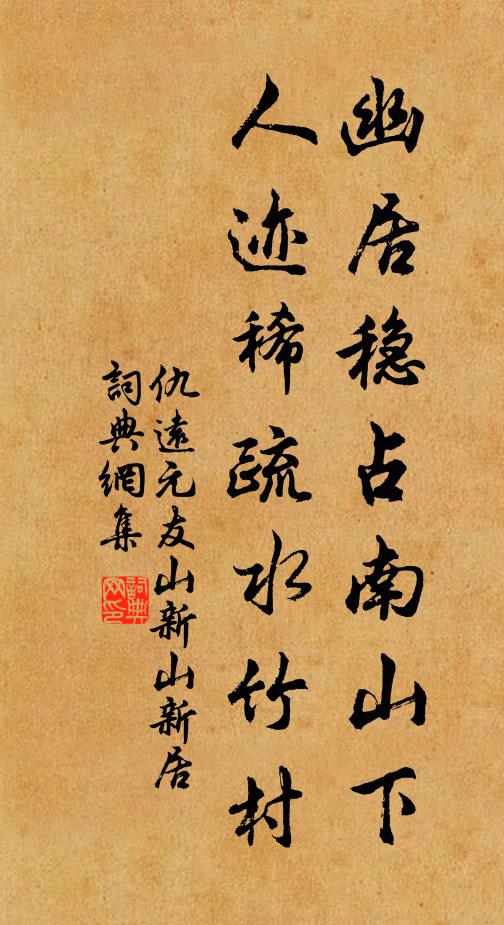 幽居稳占南山下
人迹稀疏水竹村
仇遠元友山新山新居
詞典網集
詞典網印